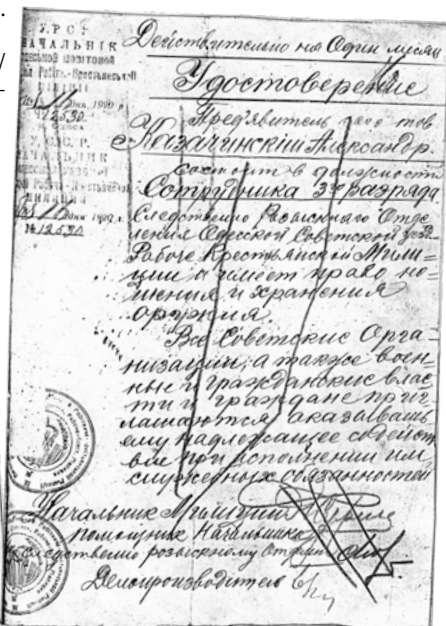 У.Р.С.Р
НАЧАЛЬНІК
МІЛІЦІІ
1920 р.
№ 12590
У.С.С.Р.
НАЧАЛЬНИК
МИЛИЦИИ
№ 12590
Действительно на Один месяц
Удостоверение
Предъявитель сего тов
Казачинскій Александр.
состоит в должности
Сотрудника 3го разряда
Следственно Розыскного Отде-
ления Одесской Советской уезд.
Рабоче Крестьянской Мили=
ции и имеет право но=
шения и хранения
оружия.
Все Советские Орга=
низации, а также воен=
ные и гражданские влас
ти и граждане приг
лашаются оказывать
ему надлежащее содейст
вие при исполнении им
служебных обязанностей
Начальник Милиции
Помощник Начальника
Следственно розыскному Отделу
Делопроизводитель